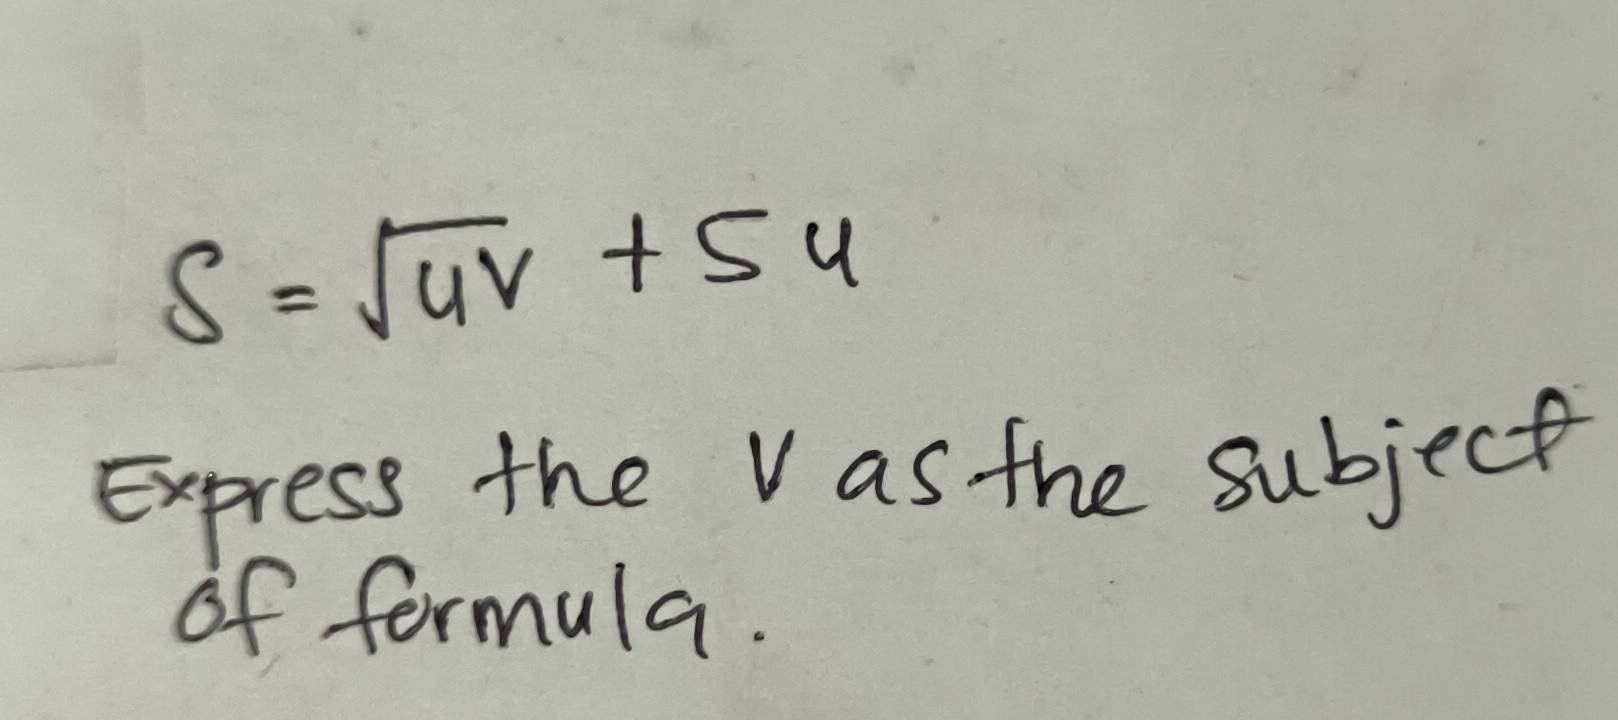 S = √uv + 5u
Express the v as the subject
of formula.